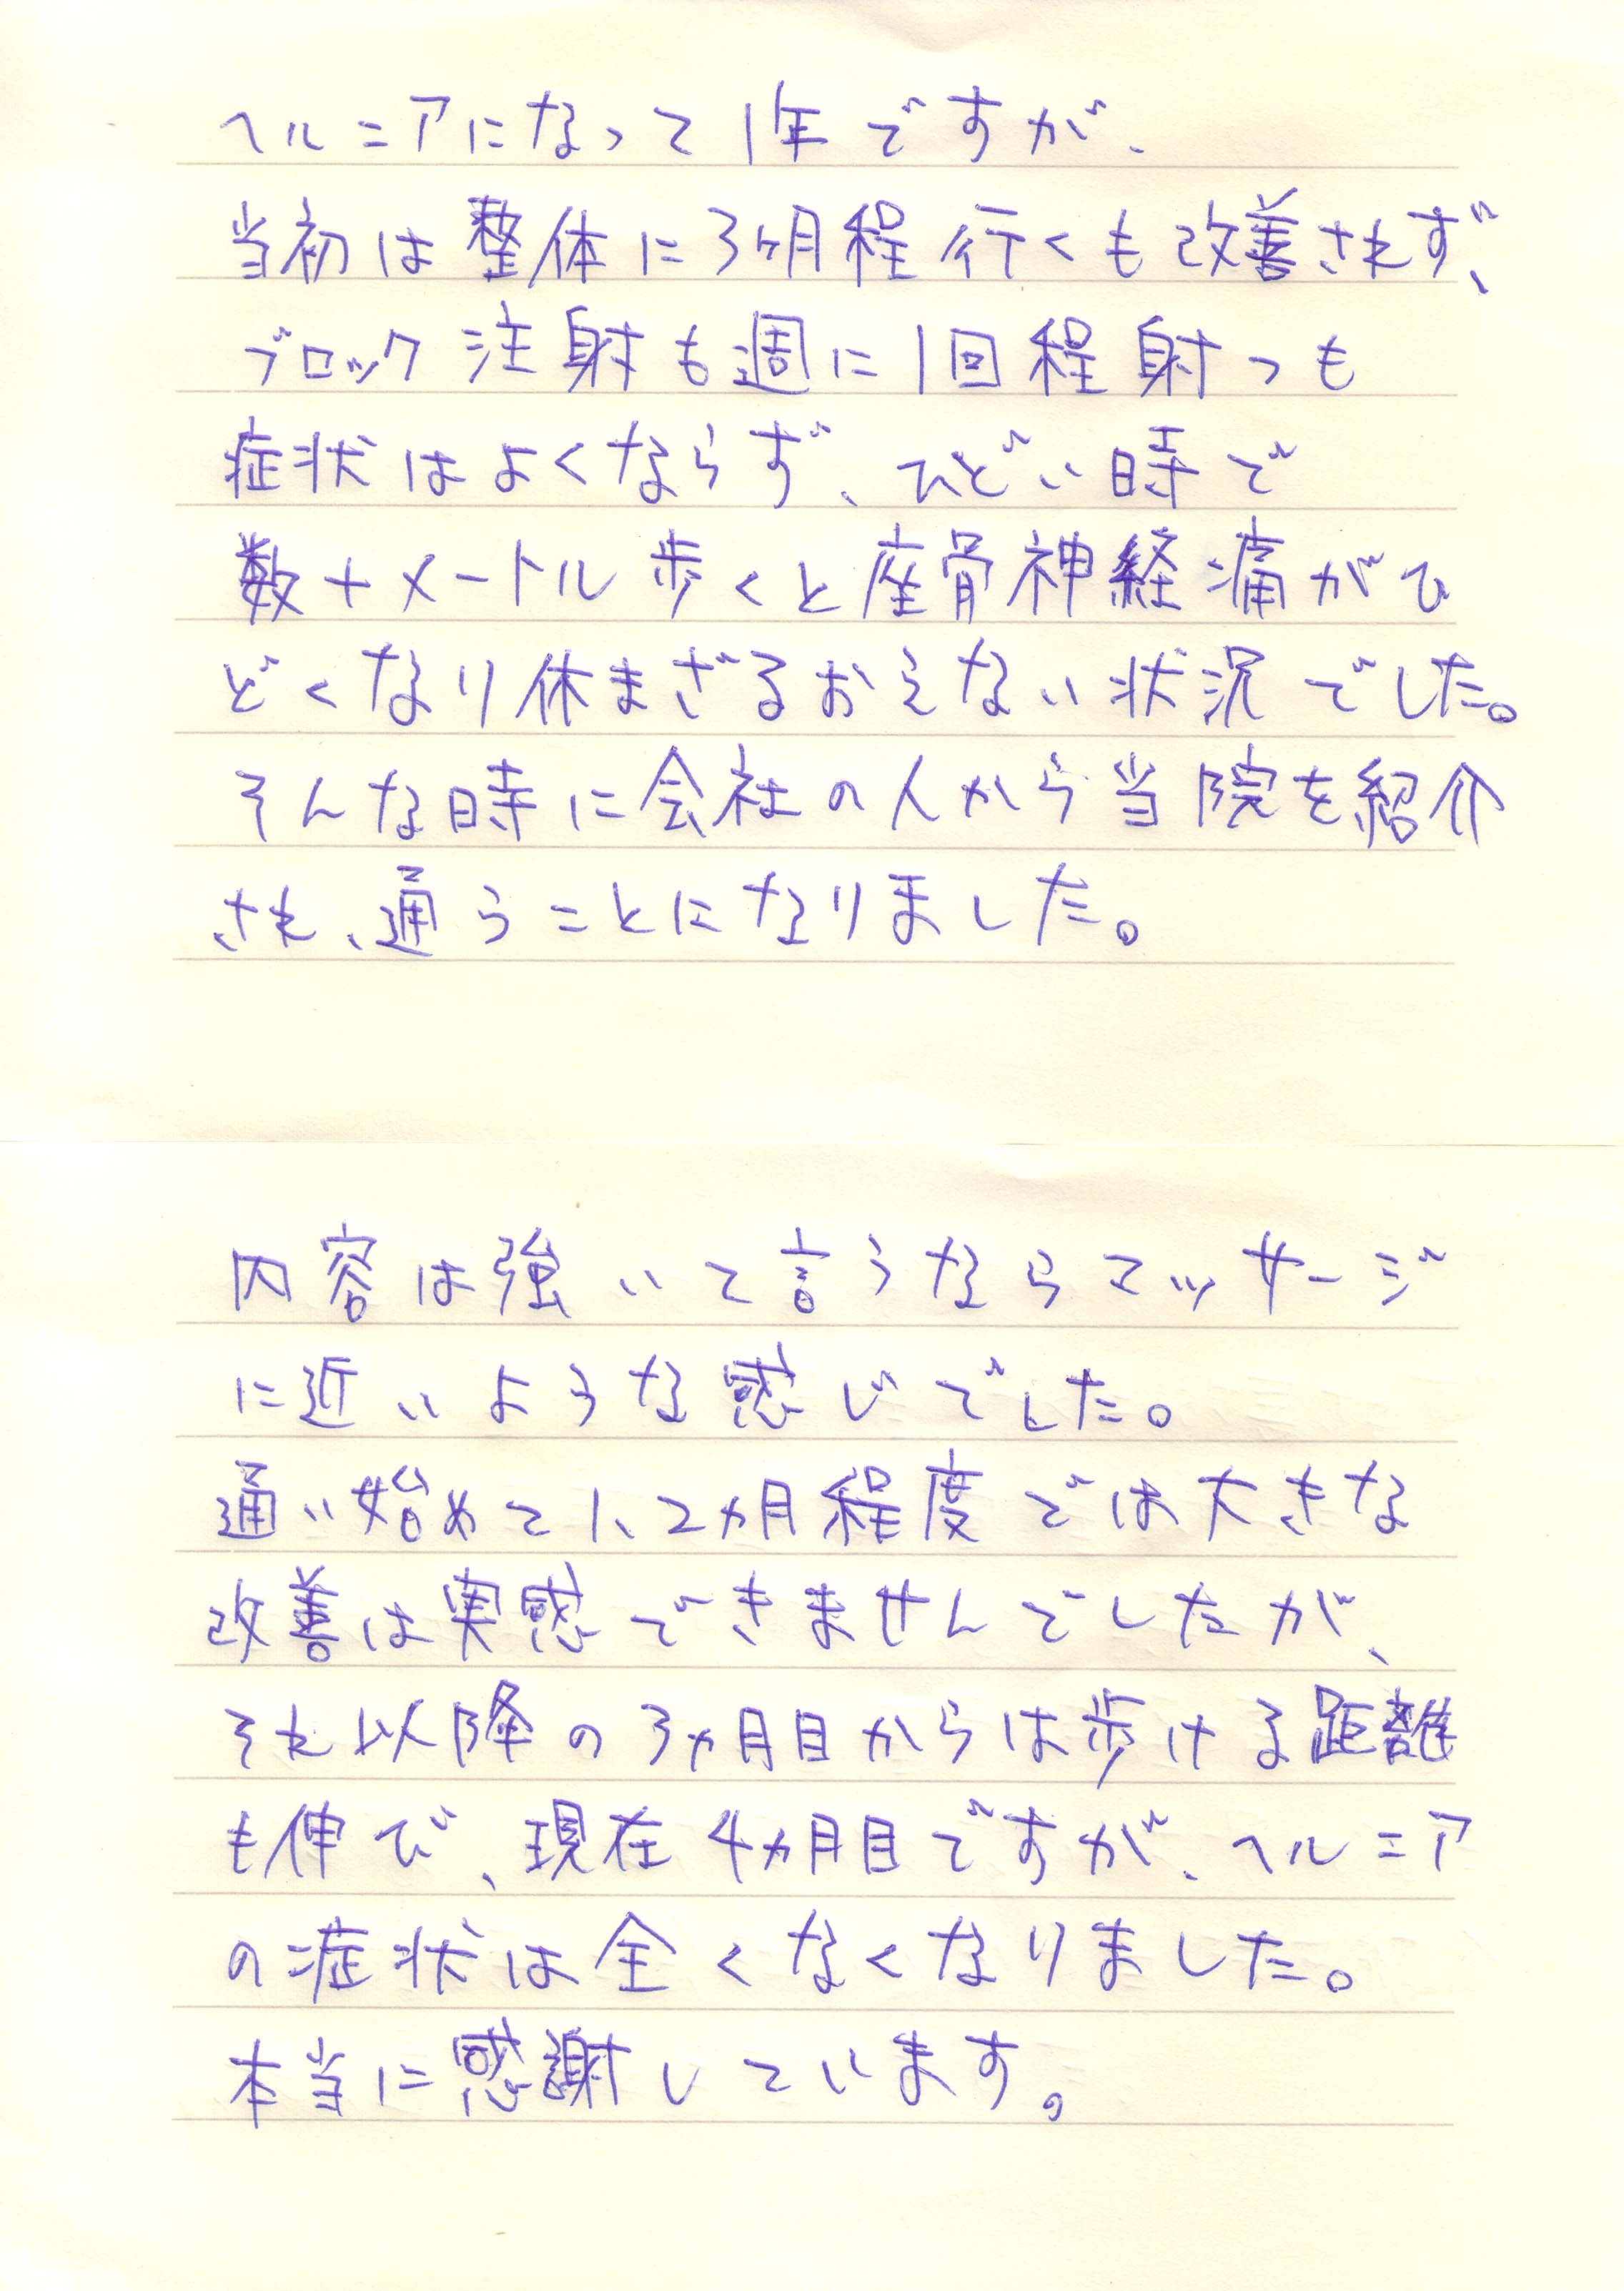 ヘルニアになって1年ですが、
当初は整体に3ヶ月程行くも改善されず、
ブロック注射も週に1回程射つも
症状はよくならず、ひどい時で
数十メートル歩くと座骨神経痛がひ
どくなり休まざるおえない状況でした。
そんな時に会社の人から当院を紹介
され、通うことになりました。
内容は強いて言うならマッサージ
に近いような感じでした。
通い始めて1、2ヵ月程度では大きな
改善は実感できませんでしたが、
それ以降の3ヵ月目からは歩ける距離
も伸び、現在4ヵ月目ですが、ヘルニア
の症状は全くなくなりました。
本当に感謝しています。